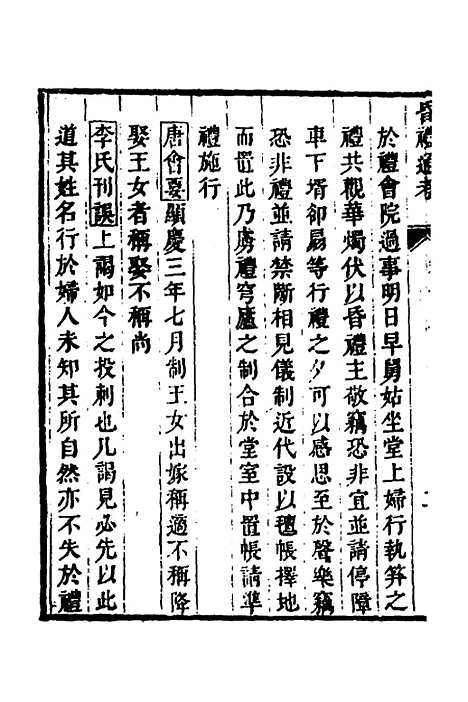 昏禮通考
於禮會院過事明日早舅姑坐堂上婦行執笲之
禮共觀華燭伏以昏禮主敬竊恐非宜並請停障
車下壻卻扇等行禮之夕可以感思至於聲樂竊
恐非禮並請禁斷相見儀制近代設以氊帳擇地
而置此乃虜禮穹廬之制合於堂室中置帳請準
禮施行
唐會要顯慶三年七月制王女出嫁稱適不稱降
娶王女者稱娶不稱尚
李氏刊誤上謁如今之投刺也凡謁見必先以此
道其姓名行於婦人未知其所自然亦不失於禮